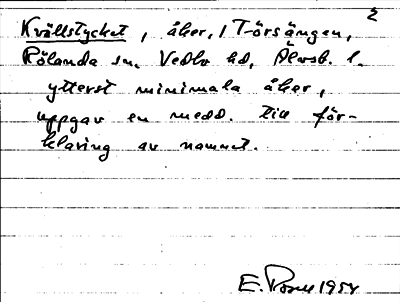 2
Kvällstycket, åker, i Torsängen,
Rölanda sn. Vedbo hd, Älvsb. l.
ytterst minimala åker,
uppgav en medd. till för-
klaring av namnet.
E. 1954